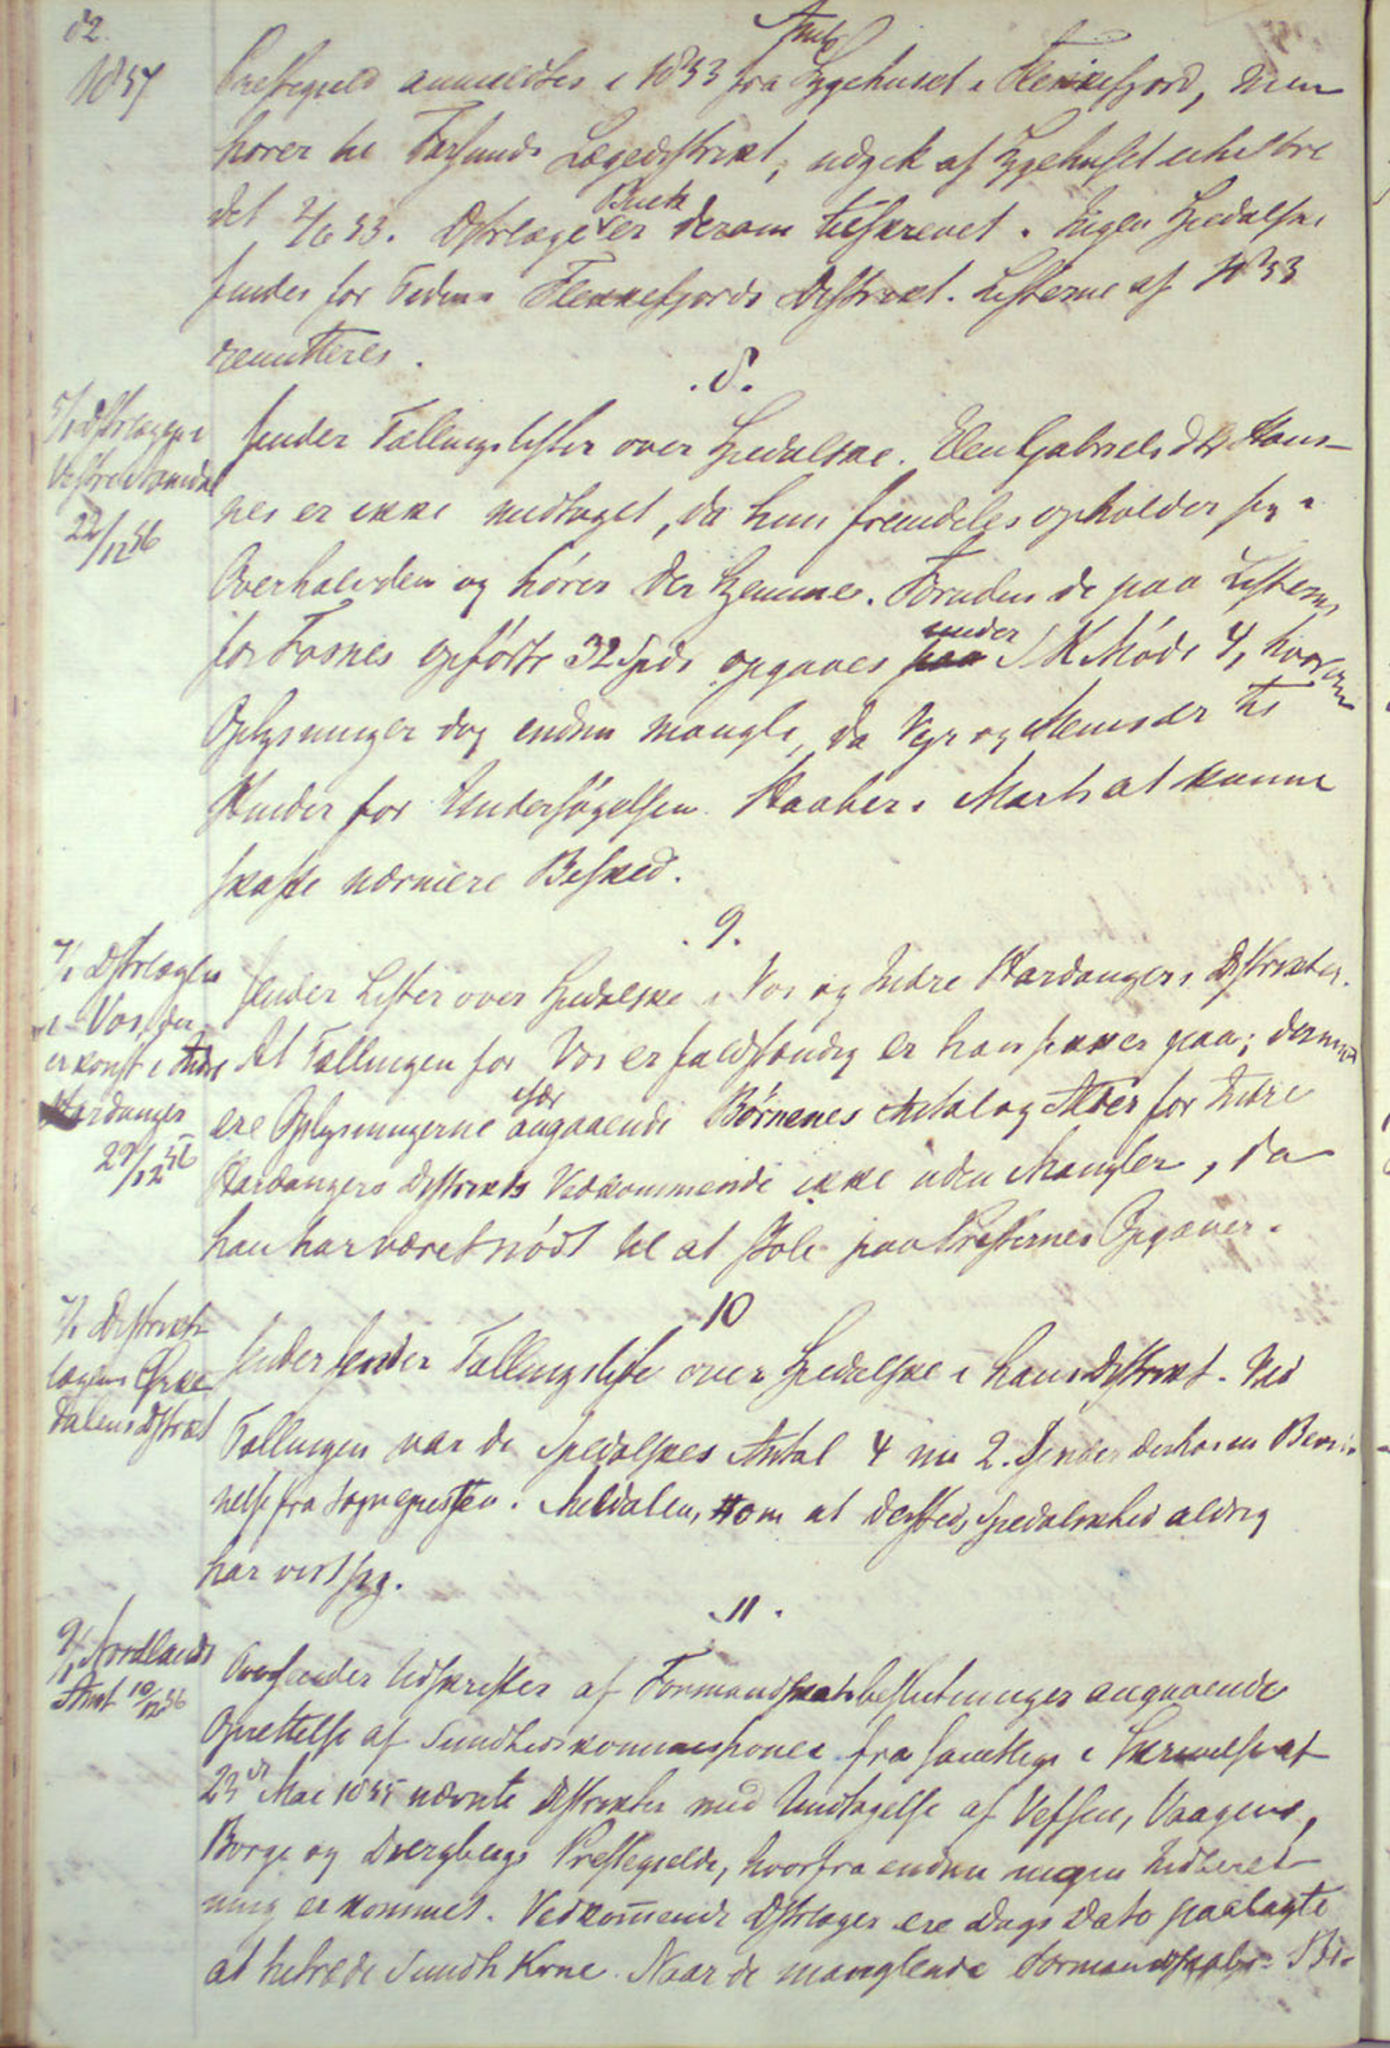 82.
1857
Amb
Præstegjeld anmeldtes i 1853 fra Sygehuset i Flekkefjord, men
hører til Farsunds Lægedistrikt, udgik af Sygehuset uhelbre
det 2/6 53. Dstrlæge Buck er derom tilskrevet. Ingen Spedalske
findes for Tiden i Flekkefjords Distrikt. Listerne af 1853
remitteres.
.8.
5/1 Dstrlægen i
Vestre Namdal
22/12 56
Sender Tællingslister over Spedalske. Elen Gabrielsdtr Hans-
nes er ikke medtaget, da hun fremdeles opholder sig i
Overhalvden og hører der hjemme. Foruden de paa Listerne
for Fosnes opførte 32 Spds opgaves under S K Møde 4, hvorom
Oplysninger dog endnu mangle, da Veir og Menis er til
Hinder for Undersøgelsen. Haaber i Marts at kunne
skaffe nærmere Besked.
.9.
7/1 Dstrlægen
i Vos, der
er konst i Indre
Hardanger
29/12 56
Sender Lister over Spedalske i Vos og Indre Hardangers Distrikter.
At Tællingen for Vos er fuldstændig er han sikker paa; derimod
ere Oplysningerne især angaaende Børnenes Antal og Alder for Indre
Hardangers Distrikts Vedkommende ikke uden Mangler, da
han har været nødt til at stole paa Præsternes Opgaver.
10
7/1 Distrikts
lægen i Orke
dalens Dstrikt
Sender Sender Tællingsliste over Spedalske i hans Distrikt. Ved
Tællingen var de Spedalskes Antal 4 nu 2. Sender derhos en Bevid
nelse fra Sognepresten i Meldalen, om at dersteds Spedalskhed aldrig
har vist sig.
.11.
9/1 Nordlands
Amt 10/12 56
Oversender Udskrifter af Formandskabsbeslutninger angaaende
Oprettelse af Sundhedskommissioner fra samtlige i Skrivelse af
23de Mai 1855 nævnte Distrikter med Undtagelse af Vefsen, Vaagens,
Borge og Dverbergs Præstegjelde, hvorfra endnu ingen Indberet
ning er kommet. Vedkommende Dstrlæger ere Dags Dato paalagte
at tiltræde Sundh Kmne. Naar de manglende Formandskabs- Be-